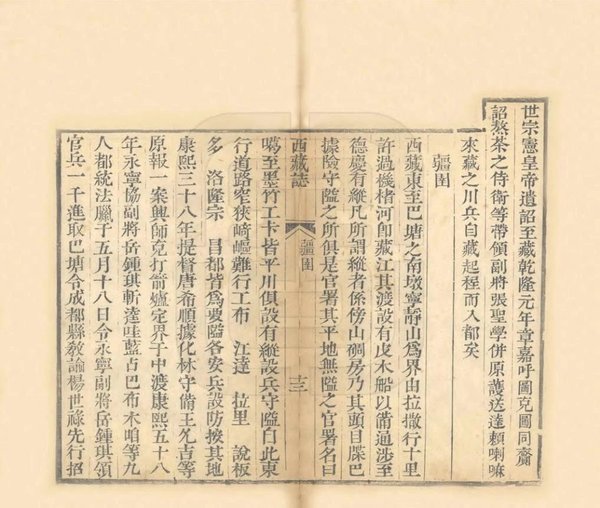 世宗憲皇帝遺詔至藏乾隆元年章嘉呼圖克圖同齎
詔熬茶之侍衛等帶領副將張聖學併原護送達賴喇嘛
來藏之川兵自藏起程而入都矣
疆圉
西藏東至巴塘之南墩寧靜山為界由拉撒行十里
許過機楮河卽藏江其渡設有皮木船以備通涉至
德慶有縱凡所謂縱者係傍山碉房乃其頭目牒巴
據險守隘之所俱是官署其平地無隘之官署名曰
西藏誌
疆圉
十三
噶至墨竹工卡皆平川俱設有縱設兵守隘自此東
行道路窄狹崎嶇難行工布 江達 拉里 說板
多 洛隆宗 昌都皆為要隘各安兵設防挨其地
康熙三十八年提督唐希順據化林守備王允吉等
原報一案興師克打箭爐定界于中渡康熙五十八
年永寧協副將岳鍾琪斬逹哇藍占巴布木咱等九
人都統法臘于五月十八日令永寧副將岳鍾琪領
官兵一千進取巴塘令成都縣教諭楊世祿先行招